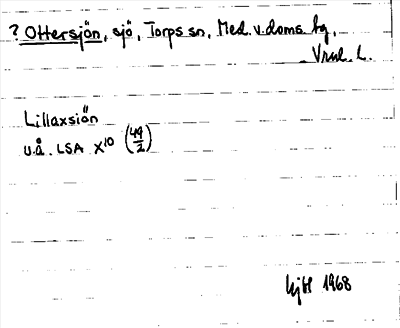 ? Ottersjön, sjö, Torps sn, Med. v. doms. hg,
Vrml. l.
Lillaxsiön
u.å. LSA X¹⁰ (49/2)
1968